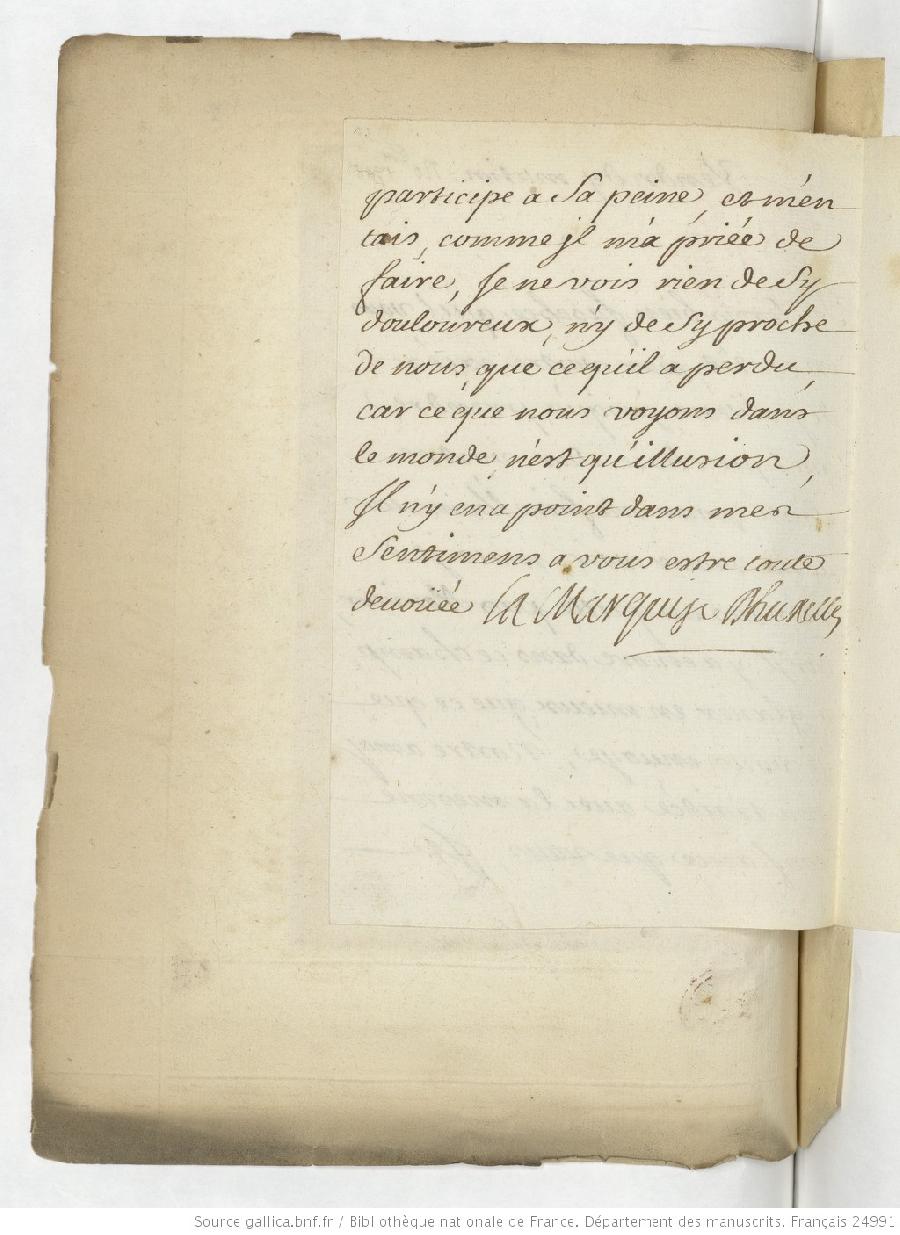 participe a Sa peine, et m'en
tais, comme jl m'a priée de
faire, Je ne vois rien de Sy
douloureux, n'y de Sy proche
de nous, que ce qu'il a perdu,
car ce que nous voyons dans
le monde, n'est qu'illusion,
Jl n'y en a point dans mes
Sentimens a vous estre toute
devoüée la Marquise Dhuxelles
Source gallica.bnf.fr / Bibliothèque nationale de France. Département des manuscrits. Français 24991